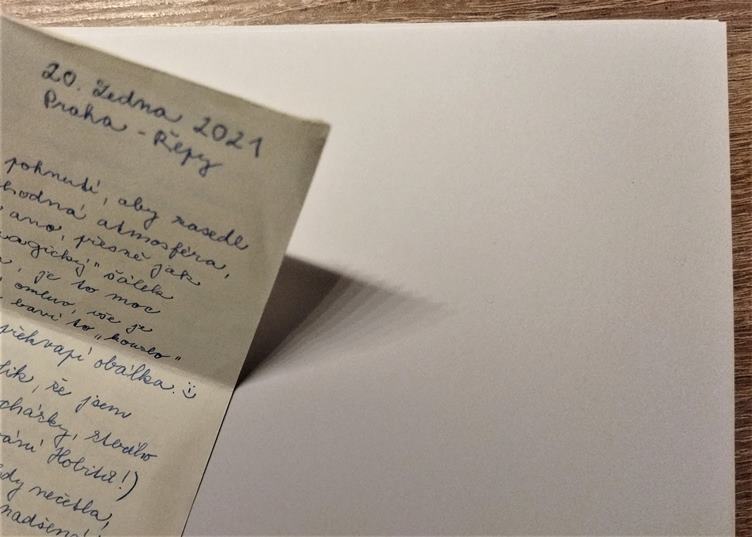 20. ledna 2021
Praha - Řepy
pohnutí, aby zasedl
hodná atmosféra,
ano, přesně jak
magický" šálek
je to moc
omluv, vše je
baví to "kouzlo"
překvapí obálka. :)
lik, že jsem
chářky,
Hobitů!)
dy nečetla,
nadšená